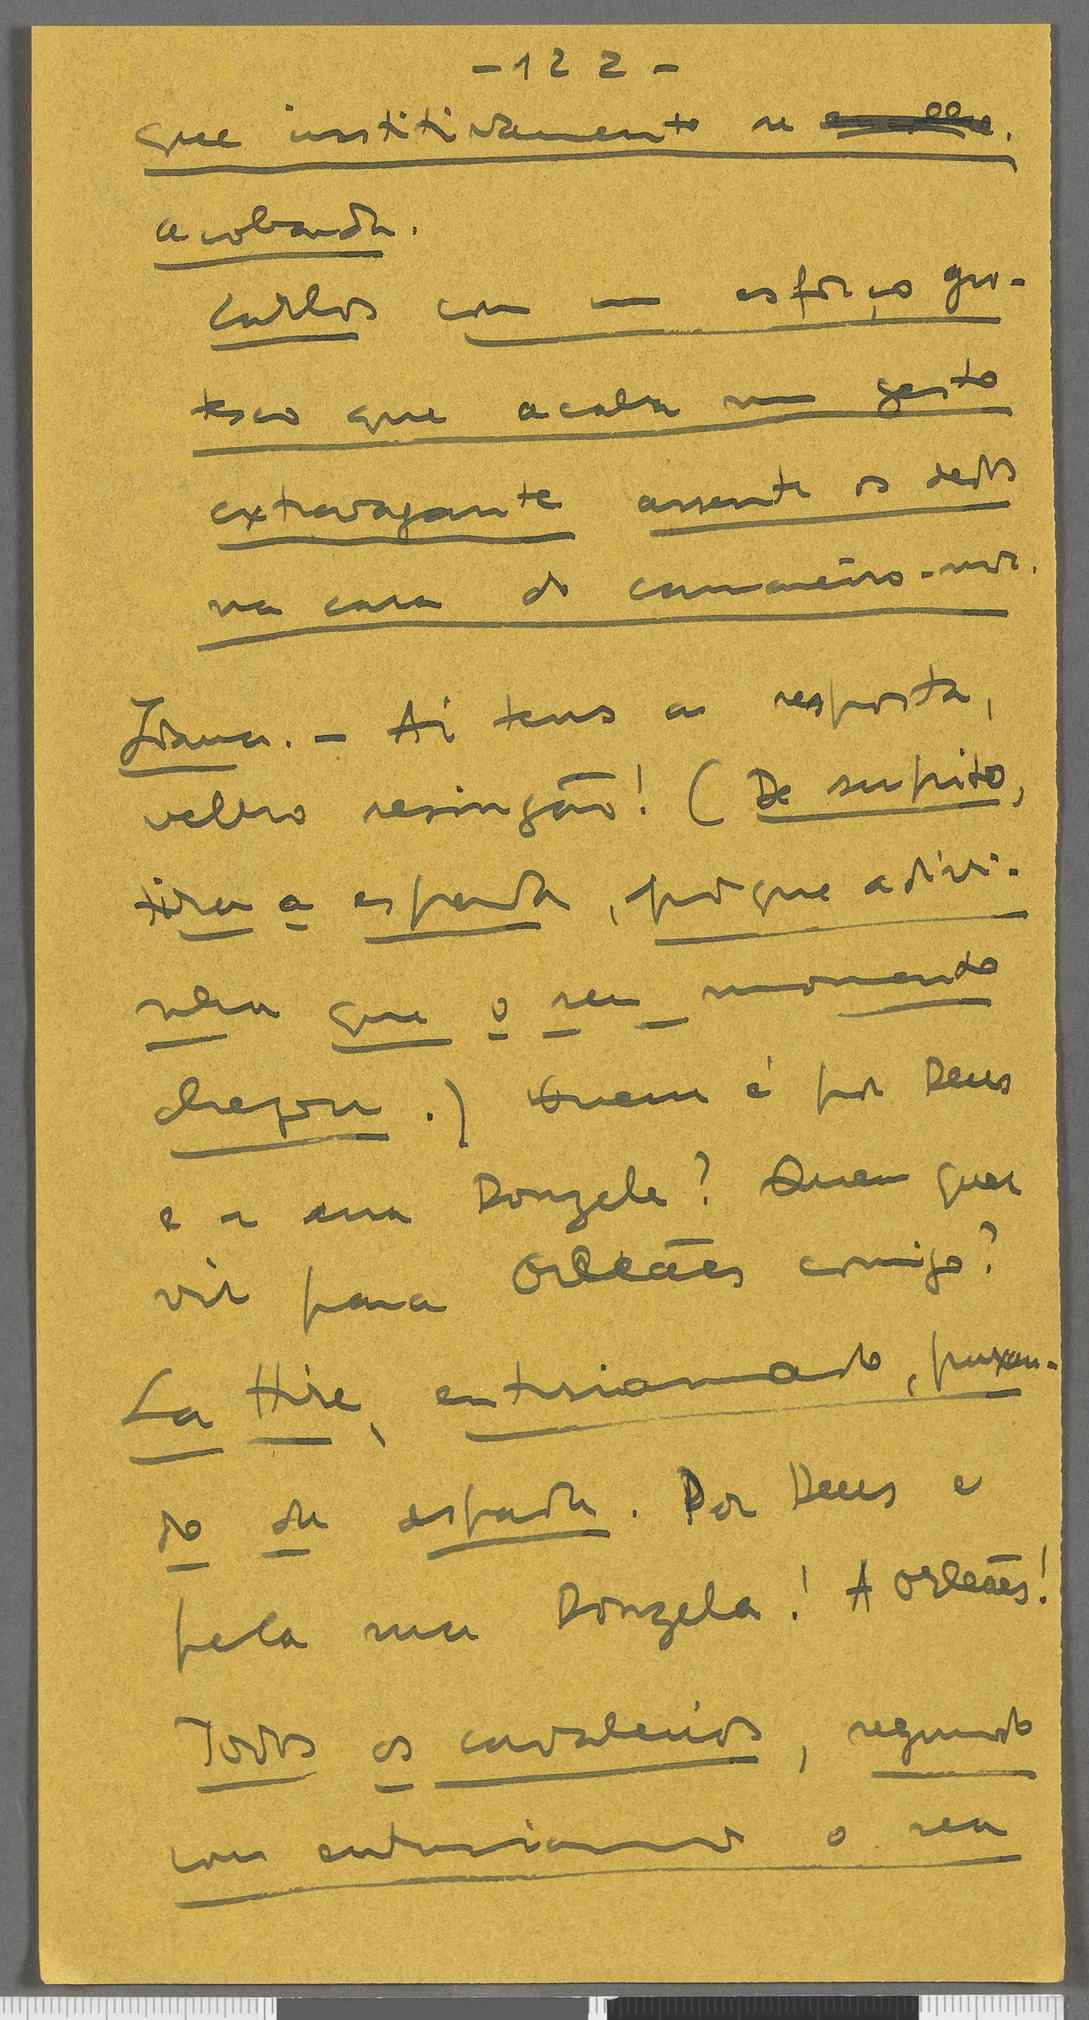 - 122 -
que institivamente se encolhe.
acobarda.
Carlos com um esforço gro-
tesco que acaba num gesto
extravagante assente os dedos
na cara do camareiro-mor.
Joana. - Aí tens a resposta,
velho resingão! (De supito,
tira a espada, porque adivi-
nha que o seu momento
chegou.) Quem é por Deus
e a sua Donzela? Quem quer
vir para Orleães comigo?
La Hire, entusiasmado, puxan-
do da espada. Por Deus e
pela sua Donzela! A Orleães!
Todos os cavaleiros, seguindo
com entusiasmo o seu